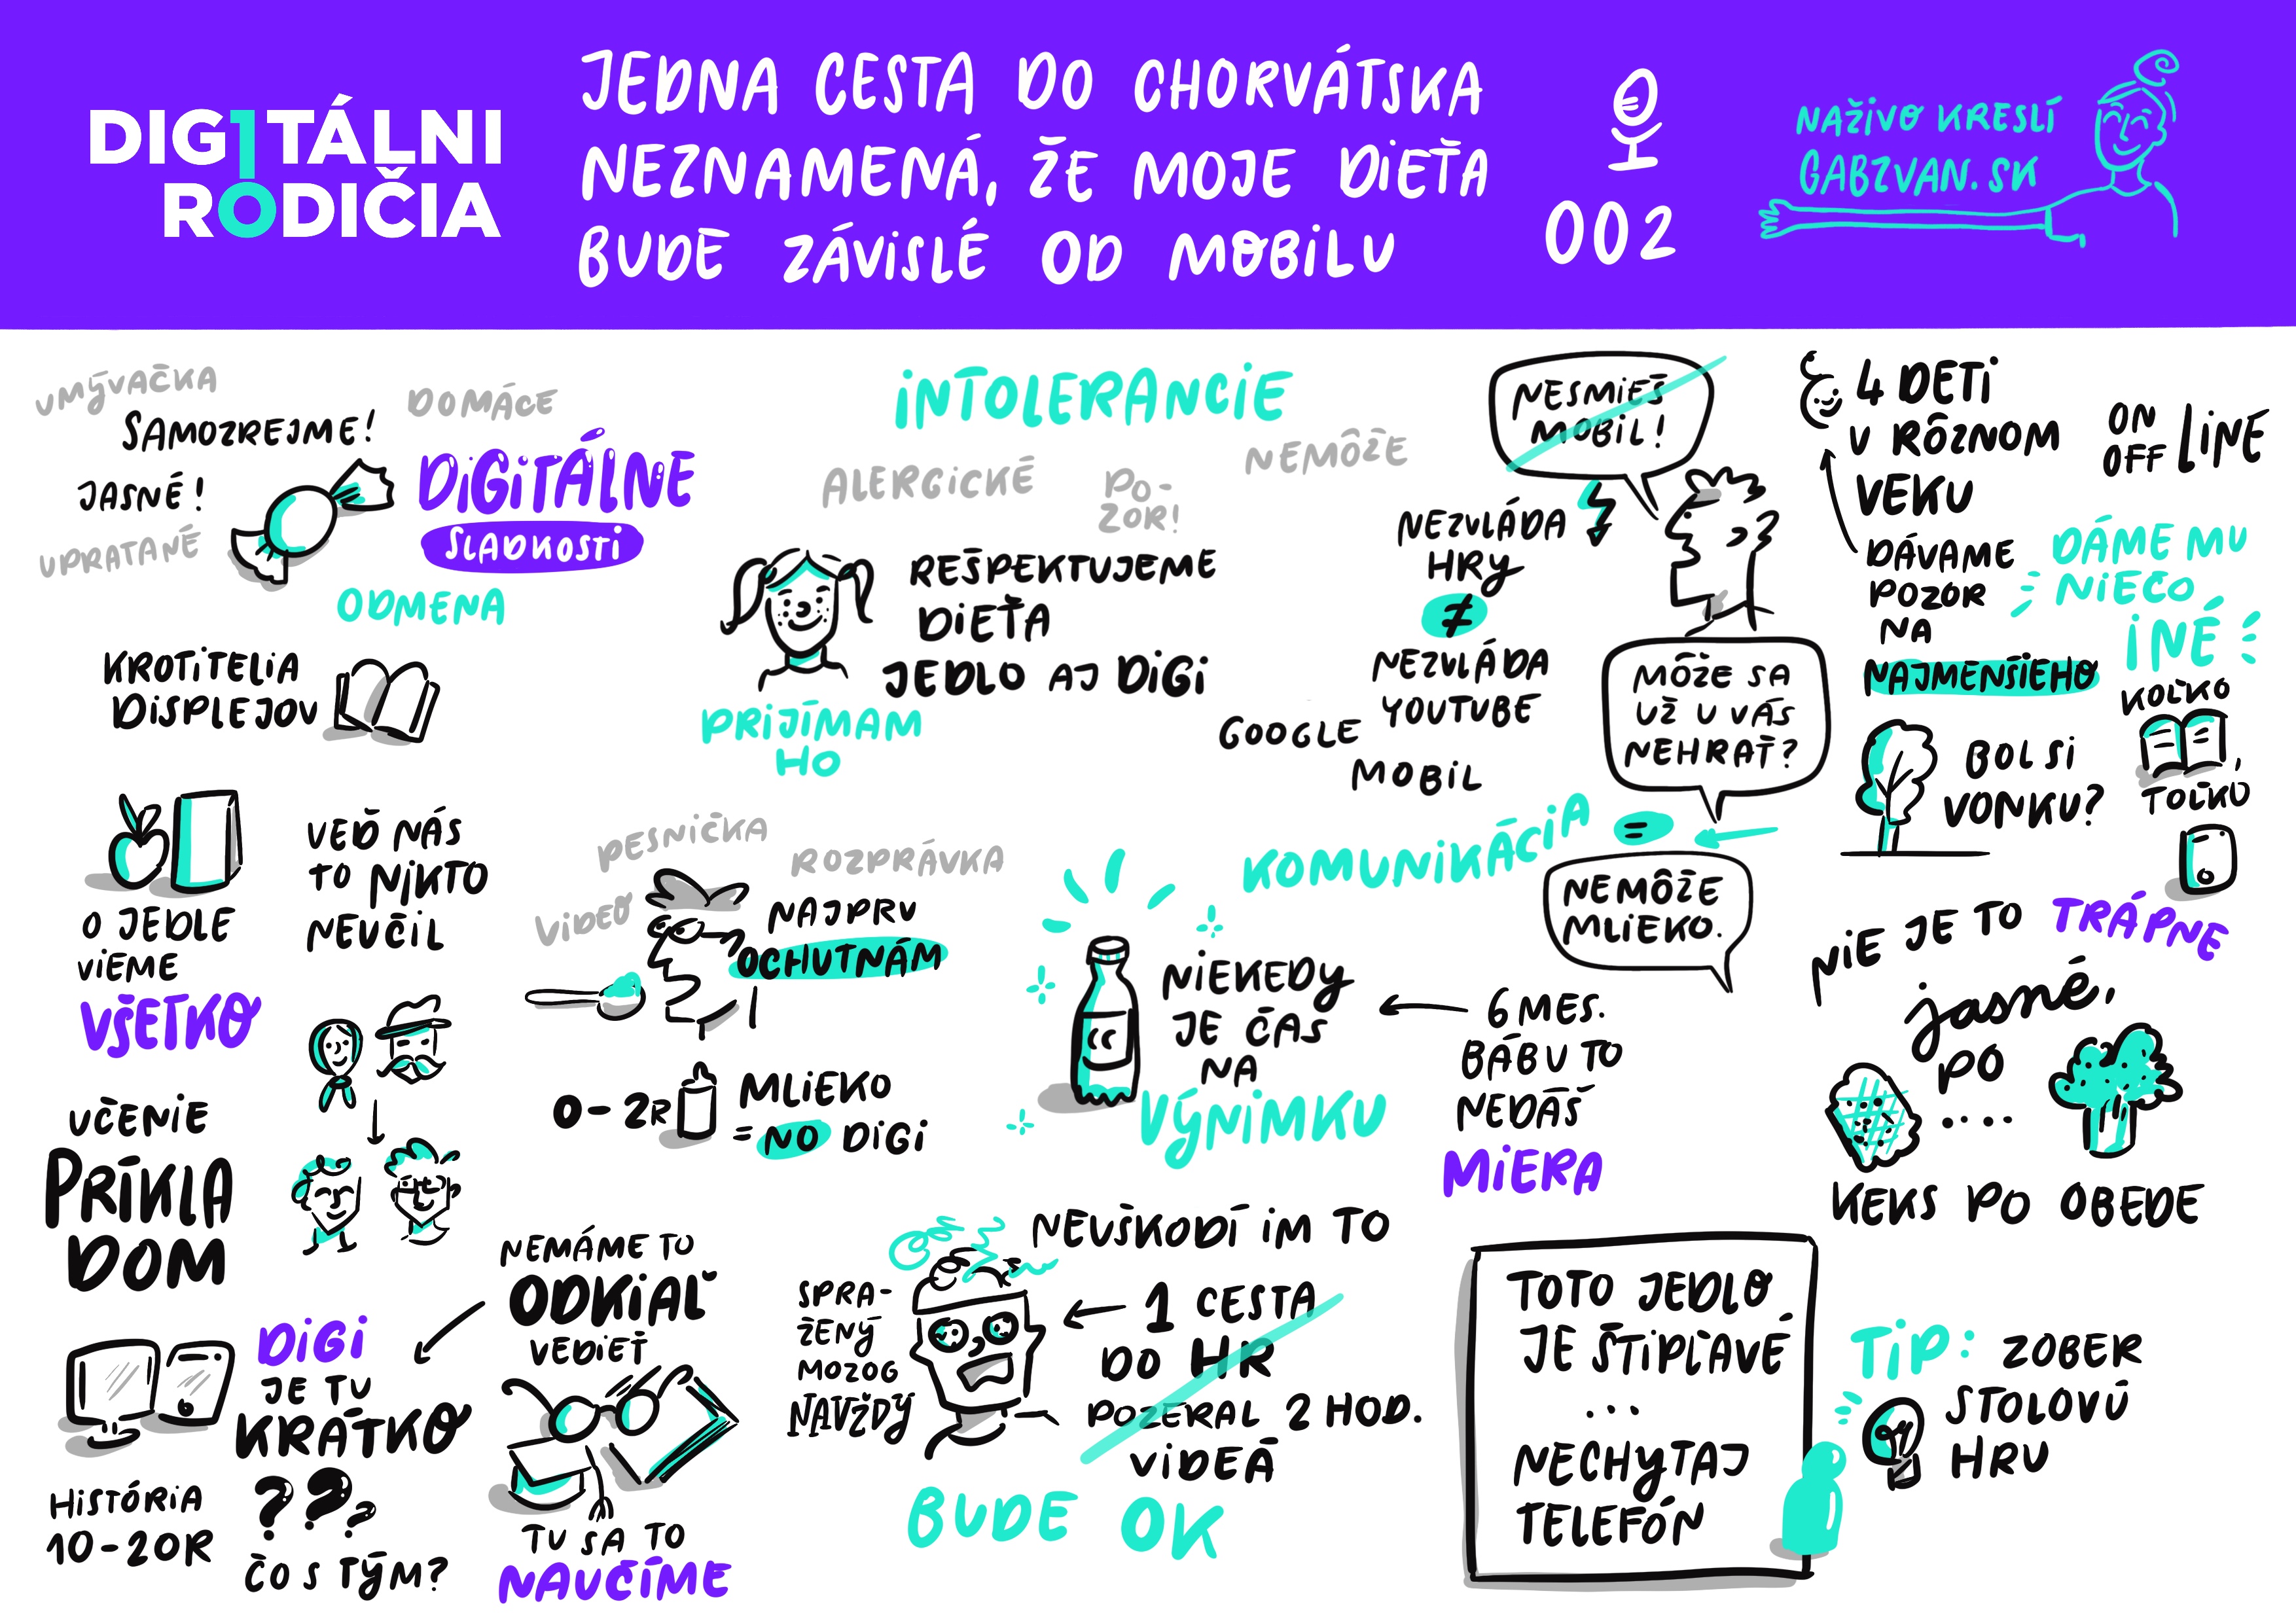 DIG1TÁLNI
RODIČIA
JEDNA CESTA DO CHORVÁTSKA
NEZNAMENÁ, ŽE MOJE DIEŤA
BUDE ZÁVISLÉ OD MOBILU
002
NAŽIVO KRESLÍ
GABZVAN.SK
UMÝVAČKA
SAMOZREJME!
JASNÉ!
UPRATANÉ
DOMÁCE
DIGITÁLNE
SLADKOSTI
ODMENA
KROTITELIA
DISPLEJOV
O JEDLE
VIEME
VŠETKO
VEĎ NÁS
TO NIKTO
NEUČIL
UČENIE
PRÍKLA
DOM
DIGI
JE TU
KRÁTKO
???
ČO S TÝM?
HISTÓRIA
10-20R
NEMÁME TO
ODKIAĽ
VEDIEŤ
TU SA TO
NAUČÍME
INTOLERANCIE
ALERGICKÉ
PO-
ZOR!
NEMÔŽE
REŠPEKTUJEME
DIEŤA
JEDLO AJ DIGI
PRIJÍMAM
HO
PESNIČKA
ROZPRÁVKA
VIDEO
NAJPRV
OCHUTNÁM
0-2R
MLIEKO
= NO DIGI
NESMIEŠ
MOBIL!
NEZVLÁDA
HRY
≠
NEZVLÁDA
YOUTUBE
GOOGLE
MOBIL
MÔŽE SA
UŽ U VÁS
NEHRAŤ?
KOMUNIKÁCIA =
NEMÔŽE
MLIEKO.
CC
NIEKEDY
JE ČAS
NA
VÝNIMKU
6 MES.
BÁBU TO
NEDÁŠ
MIERA
NEUŠKODÍ IM TO
SPRA-
ŽENÝ
MOZOG
NAVŽDY
1 CESTA
DO HR
POZERAL 2 HOD.
VIDEÁ
BUDE OK
4 DETI
V RÔZNOM
VEKU
ON
OFF
LINE
DÁVAME
POZOR
NA
NAJMENŠIEHO
DÁME MU
NIEČO
INÉ
BOL SI
VONKU?
KOĽKO
,
TOĽKO
NIE JE TO TRÁPNE
jasné,
PO
....
KEKS PO OBEDE
TOTO JEDLO
JE ŠTIPĽAVÉ
...
NECHYTAJ
TELEFÓN
TIP: ZOBER
STOLOVÚ
HRU